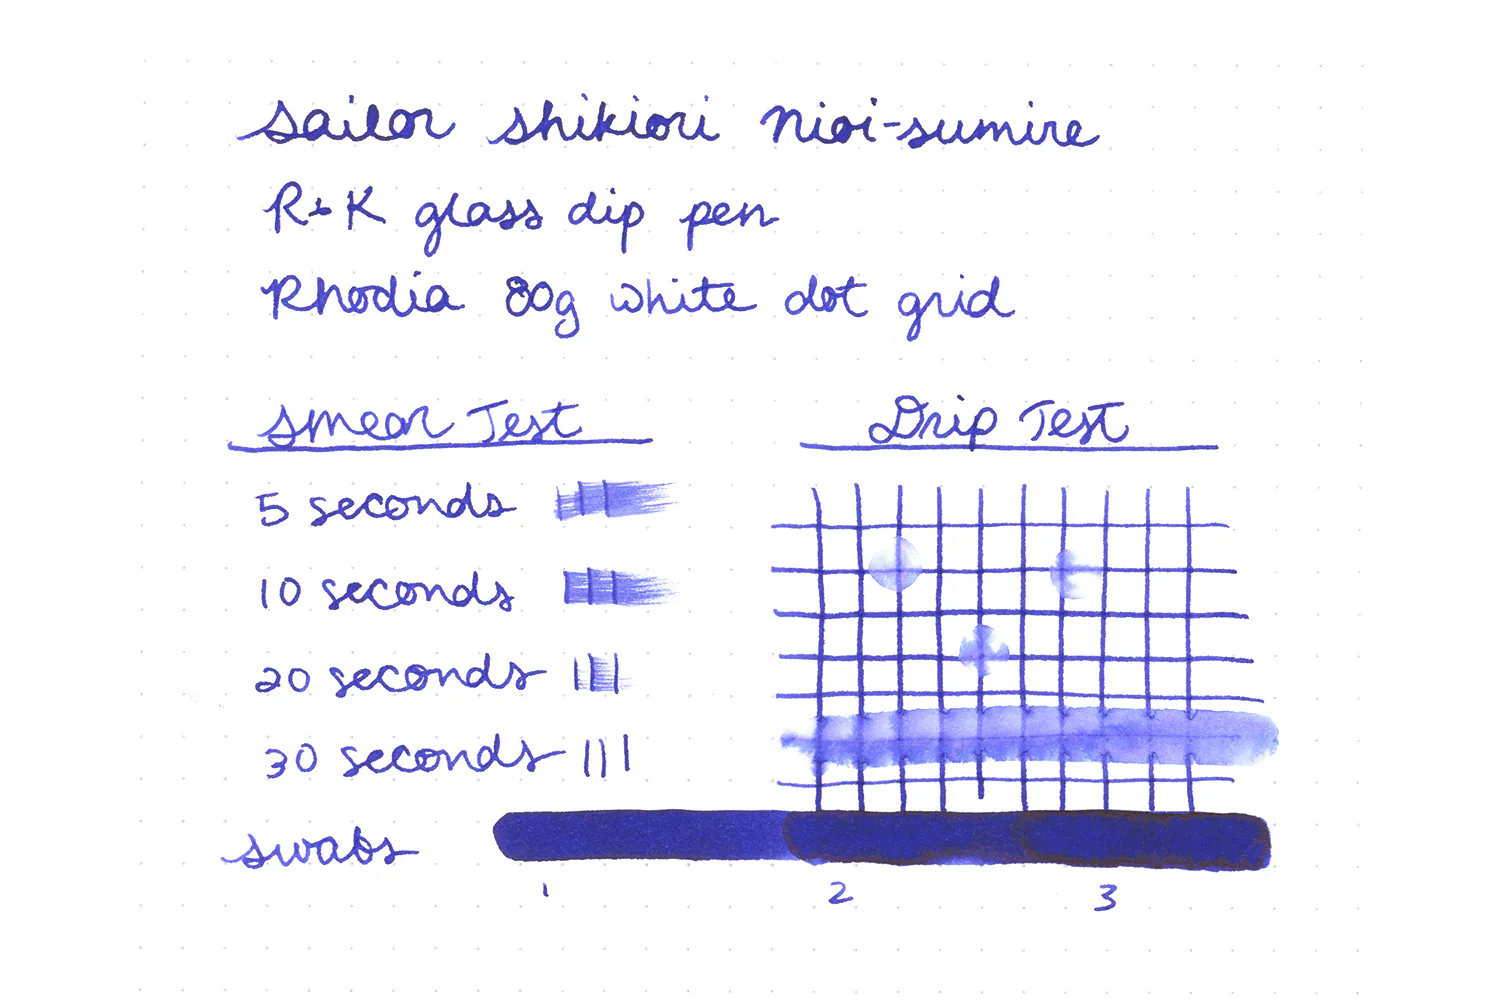 Sailor Shikiori Nioi-sumire
R+K glass dip pen
Rhodia 80g white dot grid
Smear Test
5 seconds
10 seconds
20 seconds
30 seconds
Drip Test
Swabs
1 2 3